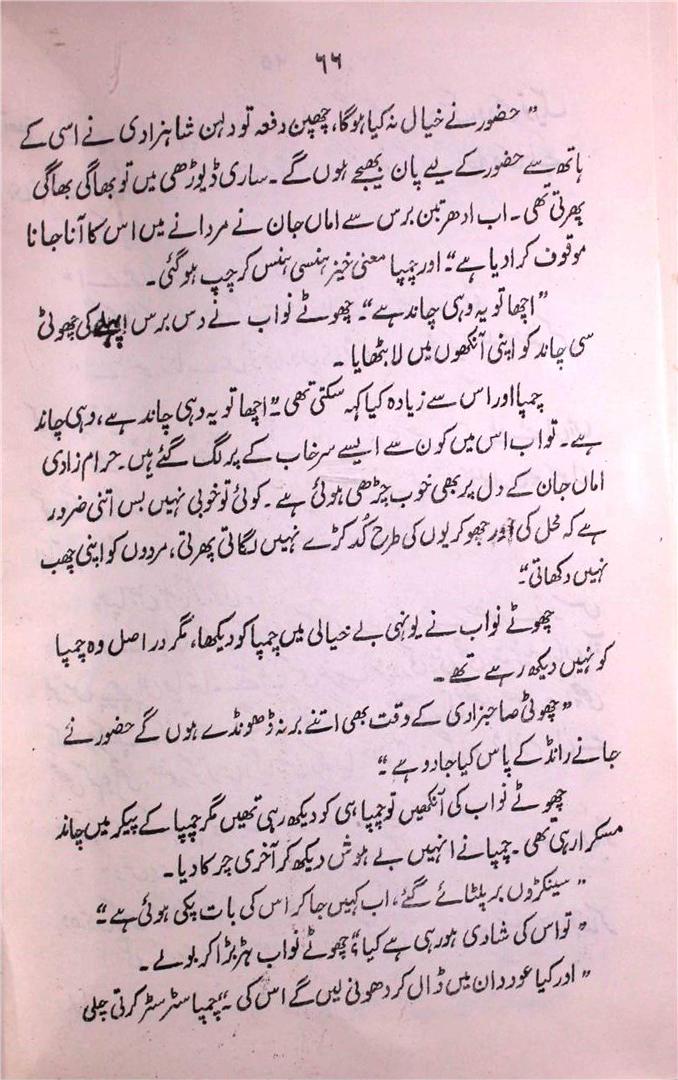 ۶۶
" حضور نے خیال نہ کیا ہوگا، چھپن دفعہ تو دلہن شاہزادی نے اسی کے
ہاتھ سے حضور کے لیے پان بھیجے ہوں گے۔ ساری ڈیوڑھی میں تو بھاگی بھاگی
پھرتی تھی۔ اب ادھر تین برس سے اماں جان نے مردانے میں اس کا آنا جانا
موقوف کرا دیا ہے" اور چمپا معنی خیز ہنسی ہنس کر چپ ہو گئی۔
"اچھا تو یہ وہی چاند ہے"۔ چھوٹے نواب نے دس برس پہلے کی چھوٹی
سی چاند کو اپنی آنکھوں میں لا بٹھایا۔
چمپا اور اس سے زیادہ کیا کہہ سکتی تھی "اچھا تو یہ وہی چاند ہے، وہی چاند
ہے۔ تو اب اس میں کون سے ایسے سرخاب کے پر لگ گئے ہیں۔ حرام زادی
اماں جان کے دل پر بھی خوب چڑھی ہوئی ہے۔ کوئی تو خوبی نہیں بس اتنی ضرور
ہے کہ محل کی اور چھوکریوں کی طرح کُد کڑے نہیں لگاتی پھرتی، مردوں کو اپنی چھب
نہیں دکھاتی"
چھوٹے نواب نے یونہی بے خیالی میں چمپا کو دیکھا، مگر در اصل وہ چمپا
کو نہیں دیکھ رہے تھے۔
"چھوٹی صاحبزادی کے وقت بھی اتنے بر نہ ڈھونڈے ہوں گے حضور نے
جانے رانڈ کے پاس کیا جادو ہے"
چھوٹے نواب کی آنکھیں تو چمپا ہی کو دیکھ رہی تھیں مگر چمپا کے پیکر میں چاند
مسکرا رہی تھی۔ چمپا نے انہیں بے ہوش دیکھ کر آخری چرکا دیا۔
"سینکڑوں بر پلٹائے گئے، اب کہیں جا کر اس کی بات پکی ہوئی ہے"
"تو اس کی شادی ہو رہی ہے کیا؟" چھوٹے نواب ہڑبڑا کر بولے۔
"اور کیا عود دان میں ڈال کر دھونی لیں گے اس کی۔" چمپا سٹر سٹر کرتی چلی